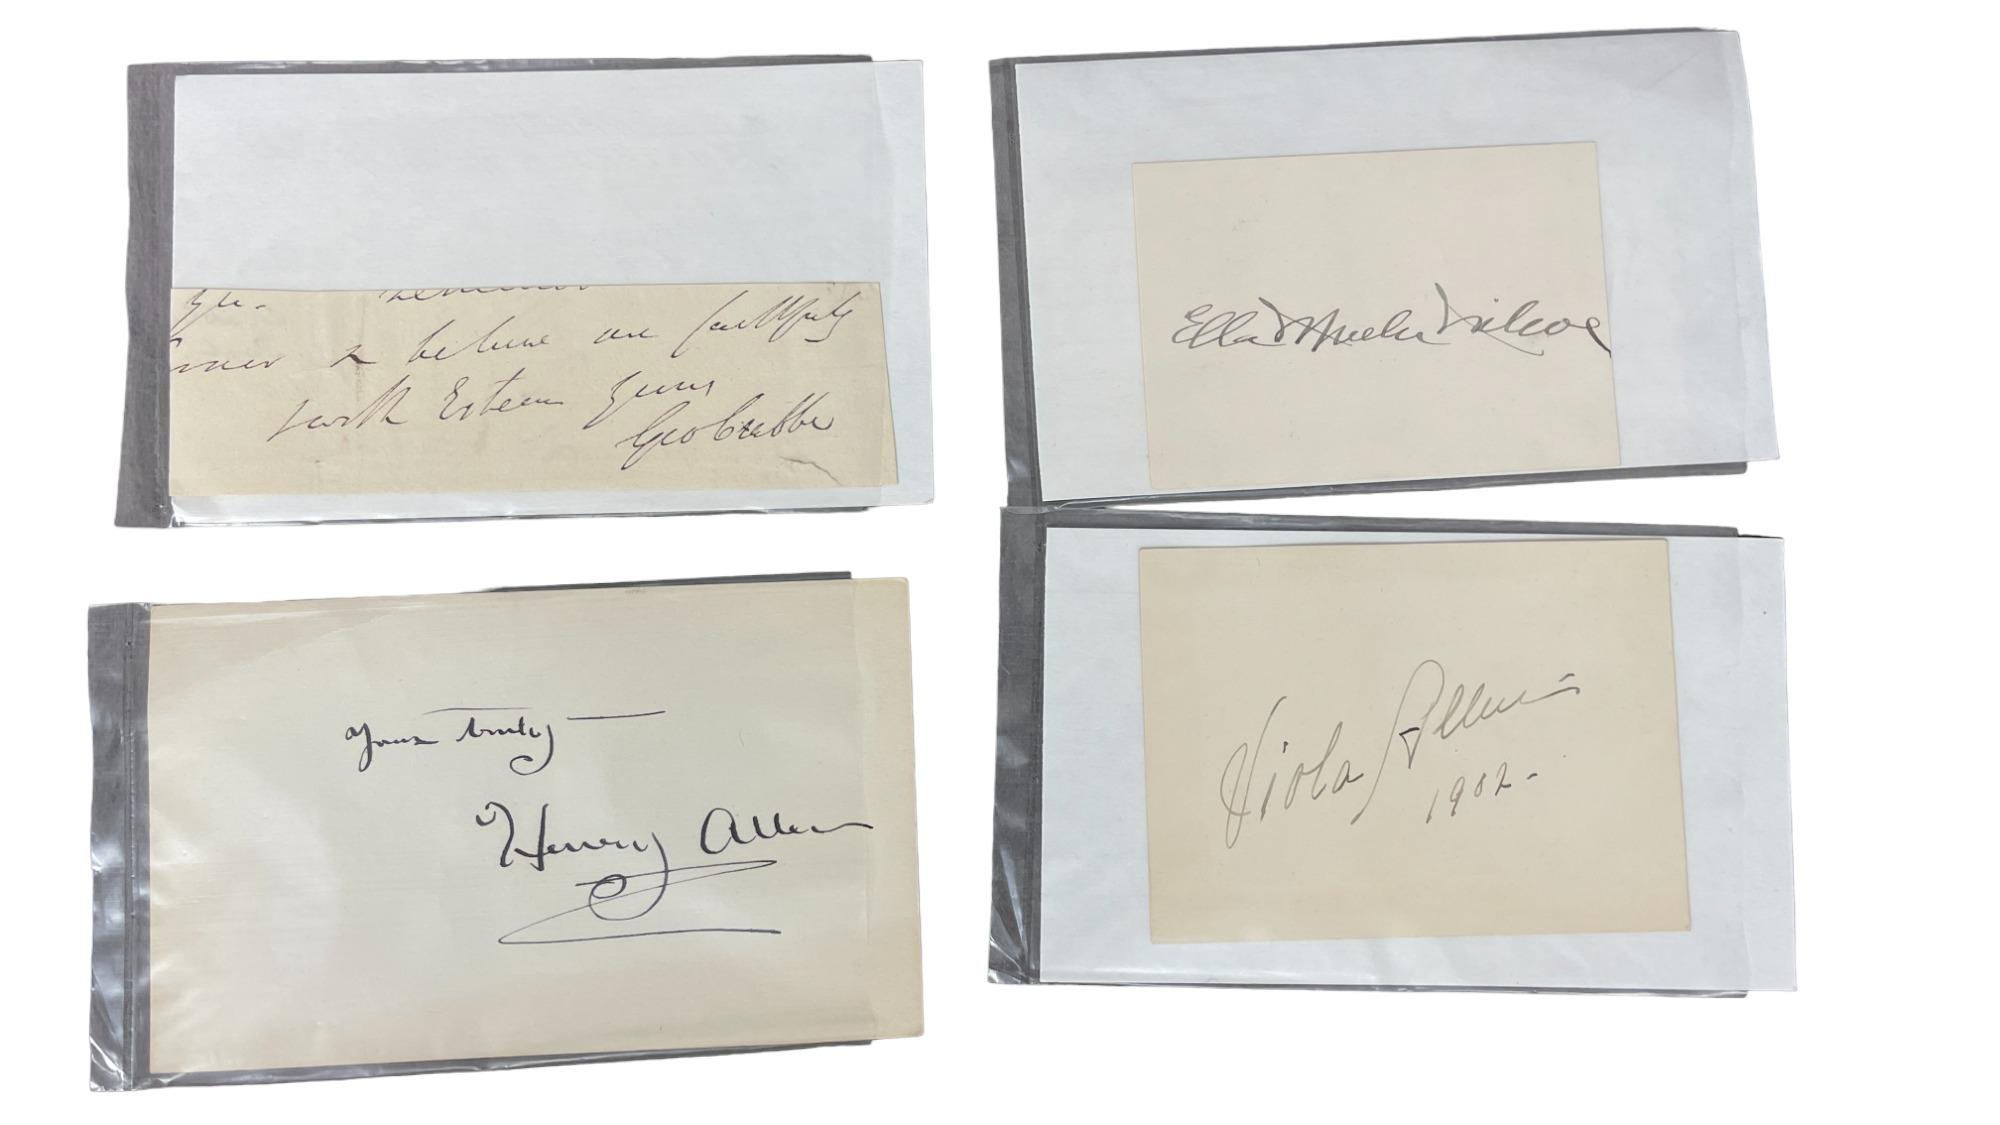 you.
to believe me faithfully
with Esteem yours
Geo Crabbe
Ella Wheeler Wilcox
Yours truly
Henry Allen
Viola Allen
1902-